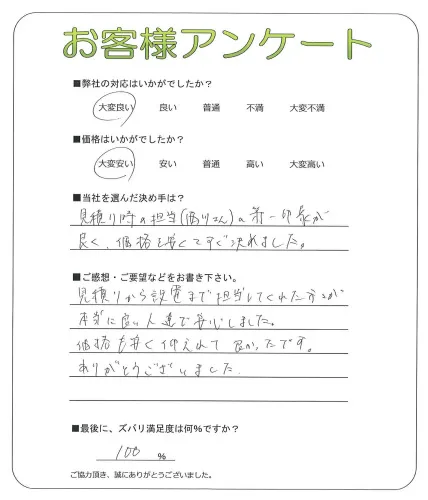 お客様アンケート
■弊社の対応はいかがでしたか?
大変良い 良い 普通 不満 大変不満
■価格はいかがでしたか?
大変安い 安い 普通 高い 大変高い
■当社を選んだ決め手は?
見積り時の担当(西川さん)の第一印象が
良く、価格も安くてすぐ決れました。
■ご感想・ご要望などをお書き下さい。
見積りから設置まで担当してくれた方々が
本当に良い人達で安心しました。
価格も安く行えて良かったです。
ありがとうございました.
■最後に、ズバリ満足度は何%ですか?
100 %
ご協力頂き、誠にありがとうございました。